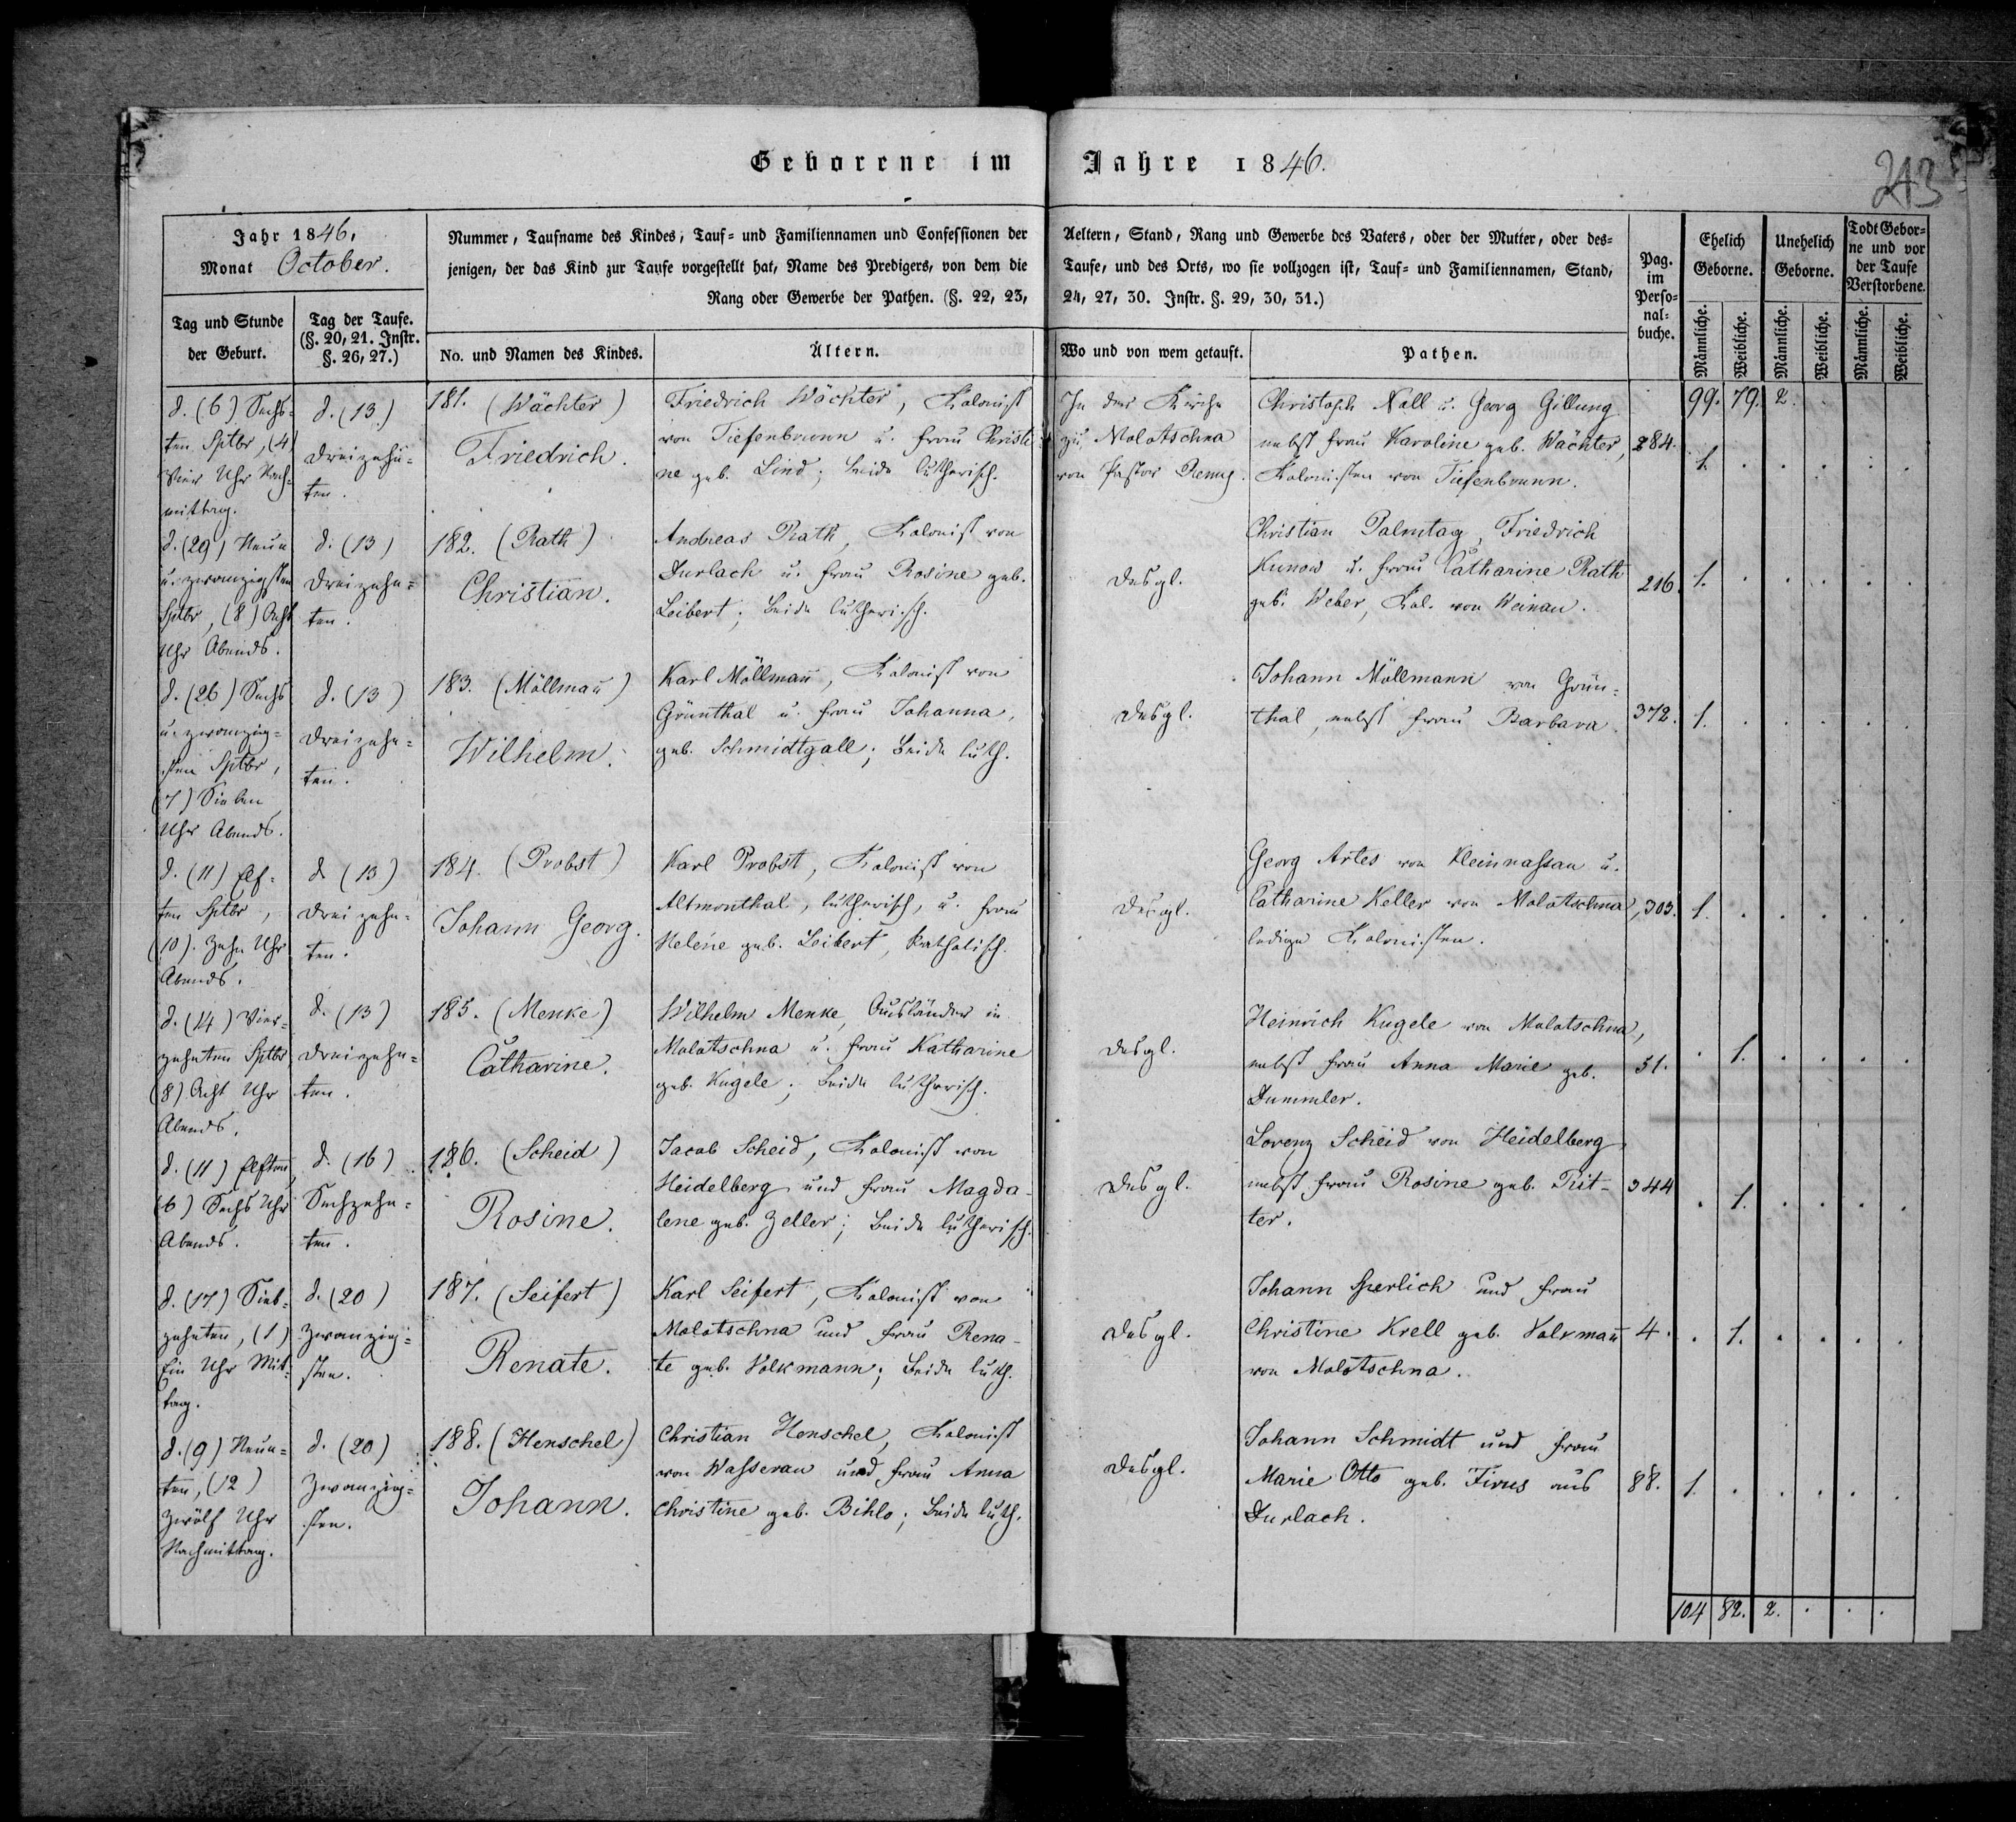 Geborene im Jahre 1846.
213
Jahr 1846.
Monat October.
Nummer, Taufname des Kindes, Tauf- und Familiennamen und Confessionen der Aeltern, Stand, Rang und Gewerbe des Vaters, oder der Mutter, oder des-
jenigen, der das Kind zur Taufe vorgestellt hat, Name des Predigers, von dem die Taufe, und des Orts, wo sie vollzogen ist, Tauf- und Familiennamen, Stand,
Rang oder Gewerbe der Pathen. (§. 22, 23, 24, 27, 30. Instr. §. 29, 30, 31.)
Pag.
im
Perso-
nal-
buche.
Ehelich
Geborne.
Unehelich
Geborne.
Todt Gebor-
ne und vor
der Taufe
Verstorbene.
Tag und Stunde
der Geburt.
Tag der Taufe.
(§. 20, 21. Instr.
§. 26, 27.)
No. und Namen des Kindes.
Ältern.
Wo und von wem getauft.
Pathen.
Männliche.
Weibliche.
Männliche.
Weibliche.
Männliche.
Weibliche.
99. 79. 2.
d. (6) Sechs-
ten Sptbr, (4)
Vier Uhr Nach-
mittag.
d. (13)
Dreizehn-
ten.
181. (Wächter)
Friedrich.
Friedrich Wächter, Kolonist
von Tiefenbrunn u. Frau Christi-
ne geb. Lind; beide lutherisch.
In der Kirche
zu Molotschna
von Pastor
Christoph Nall u. Georg Gillung
nebst Frau Karoline geb. Wächter,
Kolonisten von Tiefenbrunn.
284.
1. . . . . .
d. (29) Neun
u. zwanzigsten
Sptbr, (8) Acht
Uhr Abends.
d. (13)
Dreizehn-
ten.
182. (Rath)
Christian.
Andreas Rath, Kolonist von
Durlach u. Frau Rosine geb.
Leibert; beide lutherisch.
desgl.
Christian Palmtag, Friedrich
Kunow u. Frau Catharine Rath
geb. Weber, Kol. von Weinau.
216.
1. . . . . .
d. (26) Sechs
u. zwanzig-
sten Sptbr,
(7) Sieben
Uhr Abends.
d. (13)
Dreizehn-
ten.
183. (Möllmañ)
Wilhelm.
Karl Möllmañ, Kolonist von
Grünthal u. Frau Johanna,
geb. Schmidtgall; beide luth.
desgl.
Johann Möllmann von Grün-
thal, nebst Frau Barbara.
372.
1. . . . . .
d. (11) Elf-
ten Sptbr,
(10). Zehn Uhr
Abends.
d (13)
Dreizehn-
ten.
184. (Probst)
Johann Georg.
Karl Probst, Kolonist von
Altmonthal, lutherisch, u. Frau
Helene geb. Leibert, katholisch.
desgl.
Georg Artes von Kleinnassau u.
Catharine Keller von Molotschna,
ledige Kolonisten.
303.
1. . . . . .
d. (14) Vier-
zehnten Sptbr
(8) Acht Uhr
Abends.
d. (13)
Dreizehn-
ten.
185. (Menke)
Catharine.
Wilhelm Menke, Ausländer in
Molotschna u. Frau Katharine
geb. Kugele; beide lutherisch.
desgl.
Heinrich Kugele von Molotschna,
nebst Frau Anna Marie geb.
Dummler.
51.
. 1. . . . .
d. (11) Elften,
(6) Sechs Uhr
Abends.
d. (16)
Sechzehn-
ten.
186. (Scheid)
Rosine.
Jacob Scheid, Kolonist von
Heidelberg und Frau Magda-
lene geb. Zeller; beide lutherisch.
desgl.
Lorenz Scheid von Heidelberg
nebst Frau Rosine geb. Rit-
ter.
344
. 1. . . . .
d. (17) Sieb-
zehnten, (1)
Ein Uhr Mit-
tag.
d. (20)
Zwanzig-
sten.
187. (Seifert)
Renate.
Karl Seifert, Kolonist von
Molotschna und Frau Rena-
te geb. Volkmann; beide luth.
desgl.
Johann Sperlich und Frau
Christine Krell geb. Volkmañ
von Molotschna.
4.
. 1. . . . .
d. (9) Neun-
ten, (12)
Zwölf Uhr
Nachmittag.
d. (20)
Zwanzig-
sten.
188. (Henschel)
Johann.
Christian Henschel, Kolonist
von Wasserau und Frau Anna
Christine geb. Bihlo; beide luth.
desgl.
Johann Schmidt und Frau
Marie Otto geb. Firus aus
Durlach.
88.
1. . . . . .
104 82. 2. . . .